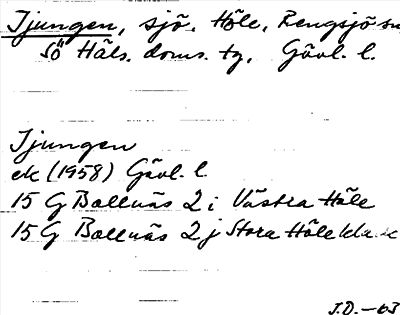 Tjungen, sjö. Höle, Rengsjö sn
Sö Häls. doms. tg. Gävl. l.
Tjungen
ek (1958) Gävl. l
15 G Bollnäs 2 i Västra Höle
15 G Bollnäs 2 j Stora Höleklack
J.D. –63